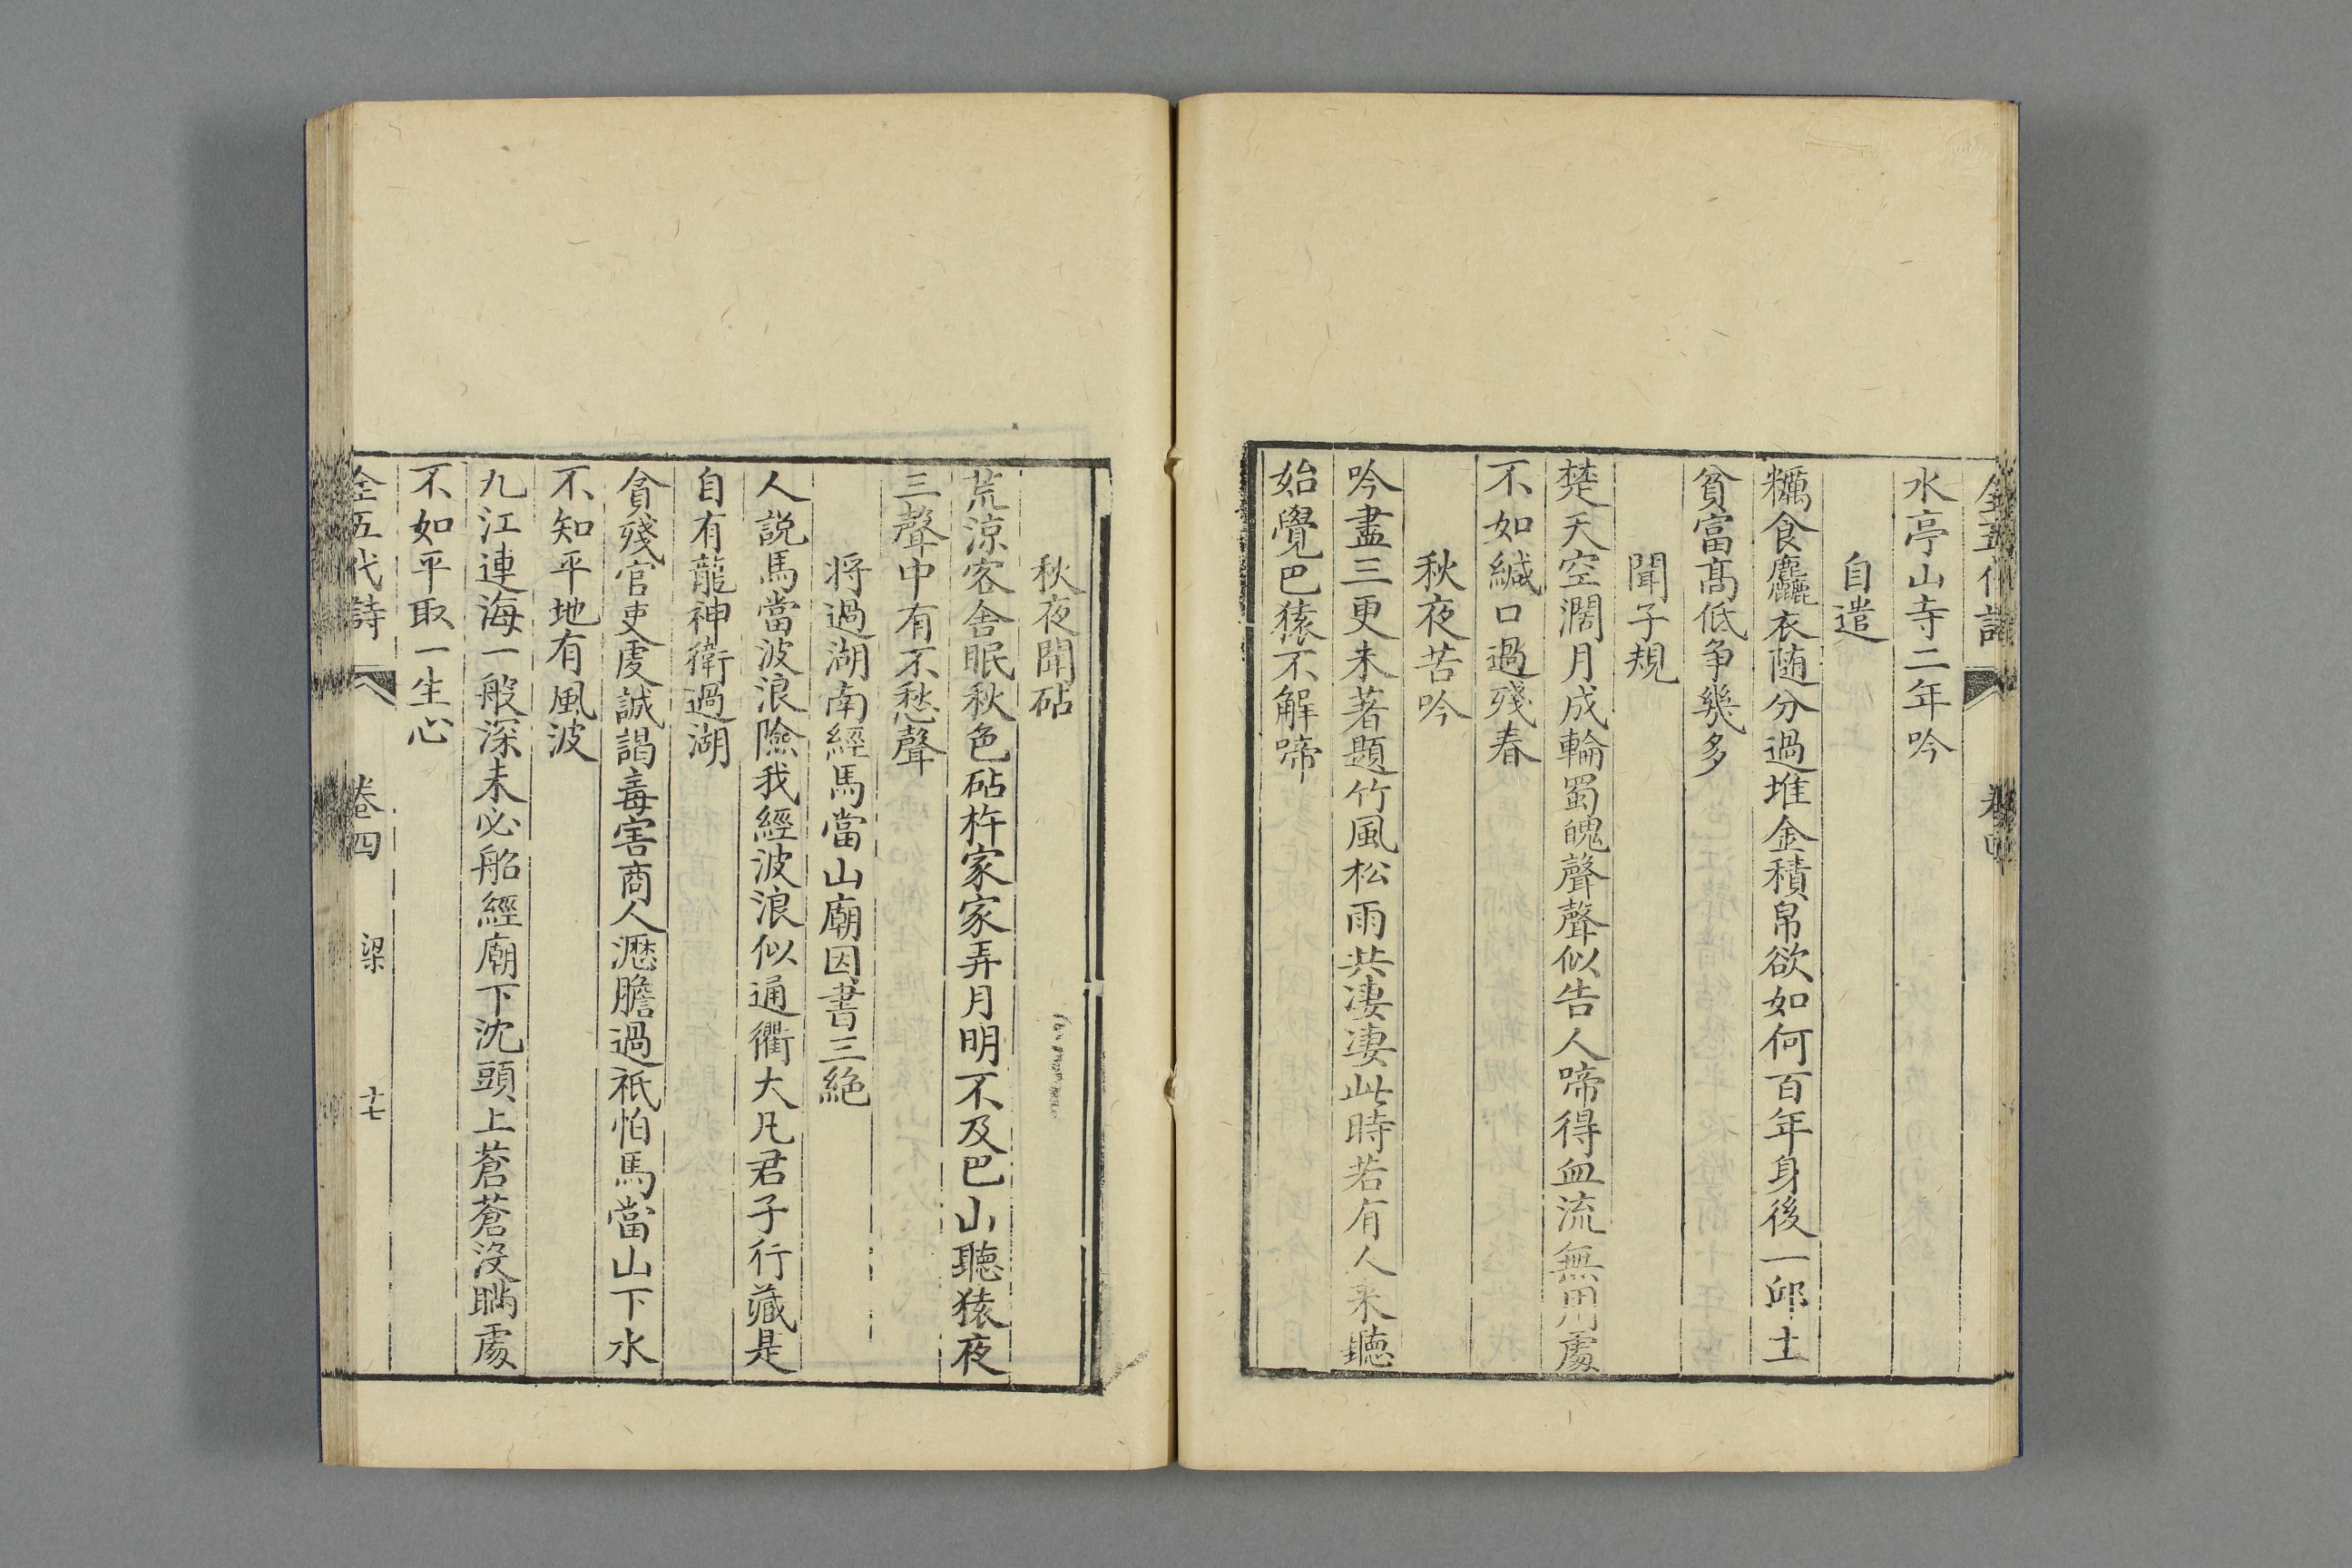 水亭山寺二年吟
自遣
糲食麤衣随分過堆金積帛欲如何百年身後一邱土
貧富髙低争㡬多
聞子規
楚天空濶月成輪蜀魄聲聲似告人啼得血流無用處
不如緘口過殘春
秋夜苦吟
吟盡三更未著題竹風松雨共淒淒此時若有人来聽
始覺巴猿不解啼
秋夜聞砧
荒涼客舍眠秋色砧杵家家弄月明不及巴山聽猿夜
三聲中有不愁聲
将過湖南經馬當山廟因書三絶
人説馬當波浪險我經波浪似通衢大凡君子行藏是
自有龍神衛過湖
貪殘官吏虔誠謁毒害商人瀝膽過祇怕馬當山下水
不知平地有風波
九江連海一般深未必船經廟下沈頭上蒼蒼没瞞處
不如平取一生心
全五代詩 卷四 梁 十七